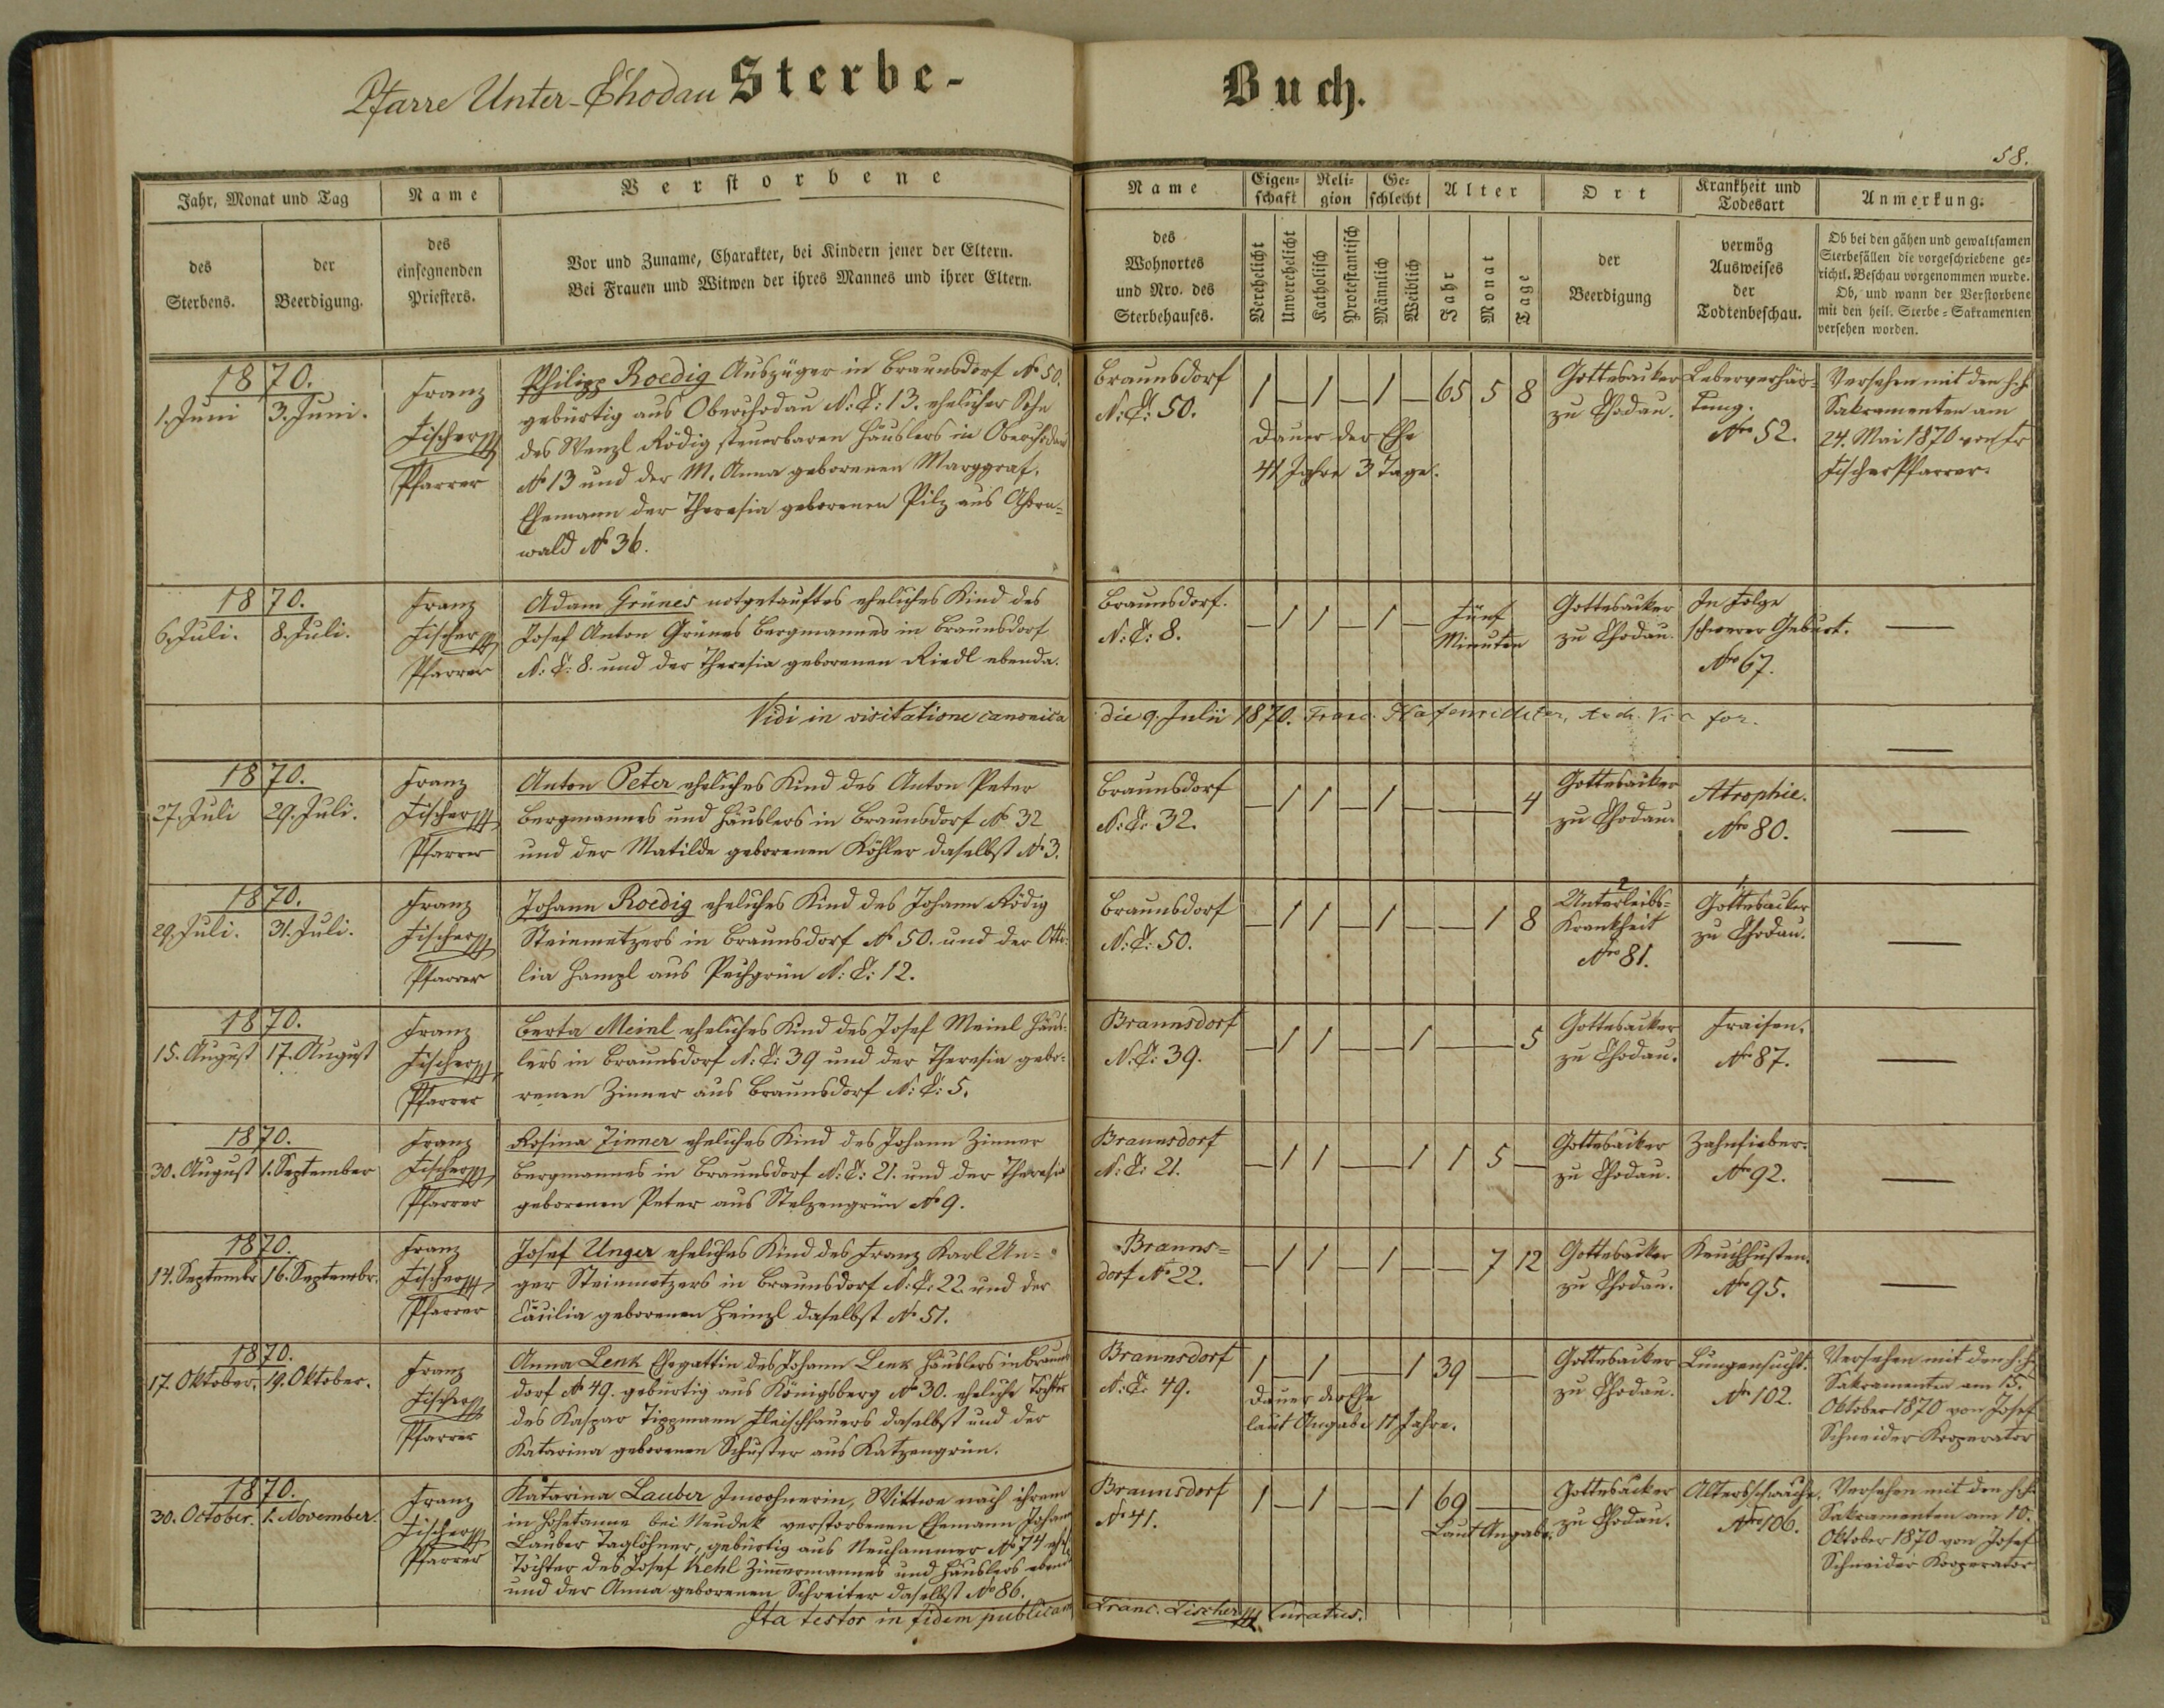 Pfarre Unter-Chodau Sterbe-
Buch.
58.
Jahr, Monat und Tag
des Sterbens.
der Beerdigung.
Name
des
einsegnenden
Priesters.
Verstorbene
Vor und Zuname, Charakter, bei Kindern jener der Eltern.
Bei Frauen und Witwen der ihres Mannes und ihrer Eltern.
Name
des
Wohnortes
und Nro. des
Sterbehauses.
Eigen-
schaft
Verehelicht
Unverehelicht
Reli-
gion
Katholisch
Protestantisch
Ge-
schlecht
Männlich
Weiblich
Alter
Jahr
Monat
Tage
Ort
der
Beerdigung
Krankheit und
Todesart
vermög
Ausweises
der
Todtenbeschau.
Anmerkung.
Ob bei den gähen und gewaltsamen
Sterbefällen die vorgeschriebene ge-
richtl. Beschau vorgenommen wurde.
Ob, und wann der Verstorbene
mit den heil. Sterbe-Sakramenten
versehen worden.
1870.
1. Juni 3. Juni.
Franz
Fischer
Pfarrer
Philipp Roedig Auszüger in Braunsdorf No 50.
gebürtig aus Oberchodau N: C: 13. ehelicher Sohn
des Wenzl Rödig steuerbaren Häuslers in Oberchodau
No 13 und der M. Anna geborenen Marggraf.
Ehemann der Theresia geborenen Pilz aus Ahorn-
wald No 36.
Braunsdorf
N: C: 50.
1 — 1 — 1 — 65 5 8
Dauer der Ehe
41 Jahre 3 Tage.
Gottesacker
zu Chodau.
Leberverhär-
tung.
Nro 52.
Versehen mit den h.h.
Sakramenten am
24. Mai 1870 von Fr
Fischer Pfarrer.
1870.
6. Juli. 8. Juli.
Franz
Fischer
Pfarrer
Adam Grünes notgetauftes eheliches Kind des
Josef Anton Grünes Bergmannes in Braunsdorf
N: C: 8. und der Theresia geborenen Riedl ebenda.
Braunsdorf.
N: C: 8.
— 1 1 — 1 — Fünf
Minuten
Gottesacker
zu Chodau.
In Folge
schwerer Geburt.
Nro 67.
—
Vidi in visitatione canonica die 9. Julii 1870. Franc. Hafenrichter, Arch. Vic for.
—
1870.
27. Juli 29. Juli.
Franz
Fischer
Pfarrer
Anton Peter eheliches Kind des Anton Peter
Bergmannes und Häuslers in Braunsdorf No 32
und der Matilde geborenen Köhler daselbst No 3.
Braunsdorf
N: C: 32.
— 1 1 — 1 — — — 4
Gottesacker
zu Chodau.
Atrophie.
Nro 80.
—
1870.
29. Juli. 31. Juli.
Franz
Fischer
Pfarrer
Johann Roedig eheliches Kind des Johann Rödig
Steinmetzers in Braunsdorf No 50. und der Otti-
lia Hampl aus Pechgrün N: C: 12.
Braunsdorf
N: C: 50.
— 1 1 — 1 — — 1 8
2
Unterleibs-
Krankheit
Nro 81.
1
Gottesacker
zu Chodau.
—
1870.
15. August 17. August
Franz
Fischer
Pfarrer
Berta Meinl eheliches Kind des Josef Meinl Häus-
lers in Braunsdorf N: C: 39 und der Theresia gebo-
renen Zinner aus Braunsdorf N: C: 5.
Braunsdorf
N: C: 39.
— 1 1 — — 1 — — 5
Gottesacker
zu Chodau.
Fraisen.
Nro 87.
—
1870.
30. August 1. September
Franz
Fischer
Pfarrer
Rosina Zinner eheliches Kind des Johann Zinner
Bergmannes in Braunsdorf N: C: 21. und der Theresia
geborenen Peter aus Stelzengrün No 9.
Braunsdorf
N: C: 21.
— 1 1 — — 1 1 5 —
Gottesacker
zu Chodau.
Zahnfieber.
Nro 92.
—
1870.
14. Septembr 16. Septembr.
Franz
Fischer
Pfarrer
Josef Unger eheliches Kind des Franz Karl Un-
ger Steinmetzers in Braunsdorf N: C: 22. und der
Cäcilia geborenen Heinzl daselbst No 51.
Brauns-
dorf No 22.
— 1 1 — 1 — — 7 12
Gottesacker
zu Chodau.
Keuchhusten.
Nro 95.
—
1870.
17. Oktober. 19. Oktober.
Franz
Fischer
Pfarrer
Anna Lenk Ehegattin des Johann Lenk Häuslers in Brauns
dorf No 49. gebürtig aus Königsberg No 30. eheliche Tochter
des Kaspar Tippmann Fleischhauers daselbst und der
Katarina geborenen Schuster aus Katzengrün.
Braunsdorf
N: C: 49.
1 — 1 — — 1 39 — —
Dauer der Ehe
laut Angabe 11 Jahre.
Gottesacker
zu Chodau.
Lungensucht.
Nro 102.
Versehen mit den h.h.
Sakramenten am 15.
Oktober 1870 von Josef
Schneider Kooperator
1870.
30. October. 1. November.
Franz
Fischer
Pfarrer
Katarina Lauber Inwohnerin, Wittwe nach ihrem
in Hohetanne bei Neudek verstorbenen Ehemann Johann
Lauber Taglöhner, gebürtig aus Neuhammer No 74 ehel
Tochter des Josef Kehl Zimmermannes und Häuslers ebenda
und der Anna geborenen Schreiter daselbst No 86.
Braunsdorf
No 41.
1 — 1 — — 1 69 — —
Laut Angabe.
Gottesacker
zu Chodau.
Altersschwäche.
Nro 106.
Versehen mit den h.h.
Sakramenten am 10.
Oktober 1870 von Josef
Schneider Kooperator
Ita testor in fidem publicam Franc. Fischer Curatus.